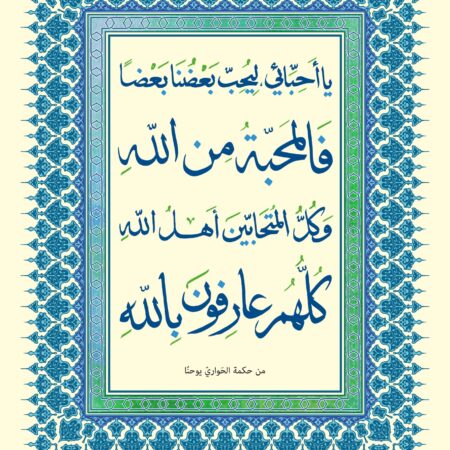 يا أَحِبّائي، لِيُحِبّ بَعْضُنَا بَعْضًا
فَالمَحَبّةُ مِنَ اللّهِ
وَكُلُّ المُتَحابّينَ أَهلُ اللّهِ
كُلُّهُم عارِفُونَ بِاللّهِ
من حكمة الحَواريّ يوحنّا